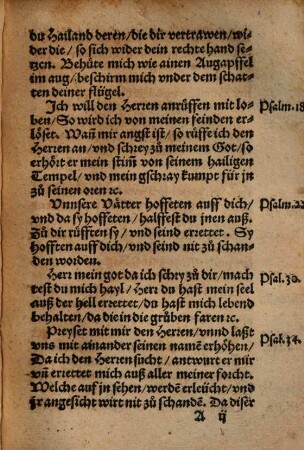 du Hailand deren/die dir vertrawen/wi-
der die/so sich wider dein rechte hand se-
tzen. Behüte mich wie ainen Augapffel
im aug/beschirm mich vnder dem schat-
ten deiner flügel.
Ich will den Herren anrüffen mit lo-
ben/So wird ich von meinen feinden er-
löset. Wañ mir angst ist/so rüffe ich den
Herren an/vnd schrey zů meinem Got/so
erhört er mein stim̃ von seinem hailigen
Tempel/vnd mein gschray kumpt für jn
zů seinen oren ꝛc.
Psalm.18
Vnnsere Vätter hoffeten auff dich/
vnd da sy hoffeten/halffest du jnen auß.
Zů dir rüfften sy/vnd seind errettet. Sy
hofften auff dich/vnd seind nit zů schan-
den worden.
Psalm.22
Herr mein got da ich schry zů dir/mach
test du mich hayl/Herr du hast mein seel
auß der hell errettet/du hast mich lebend
behalten/da die in die grůben faren ꝛc.
Psal.30.
Preyset mit mir den Herren/vnnd laßt
vns mit ainander seinen namē erhöhen/
Da ich den Herren sucht/antwurt er mir
vñ errettet mich auß aller meiner forcht.
Welche auf jn sehen/werdē erleücht/vnd
jr angesicht wirt nit zů schandē. Da diser
Psal.34.
A ij